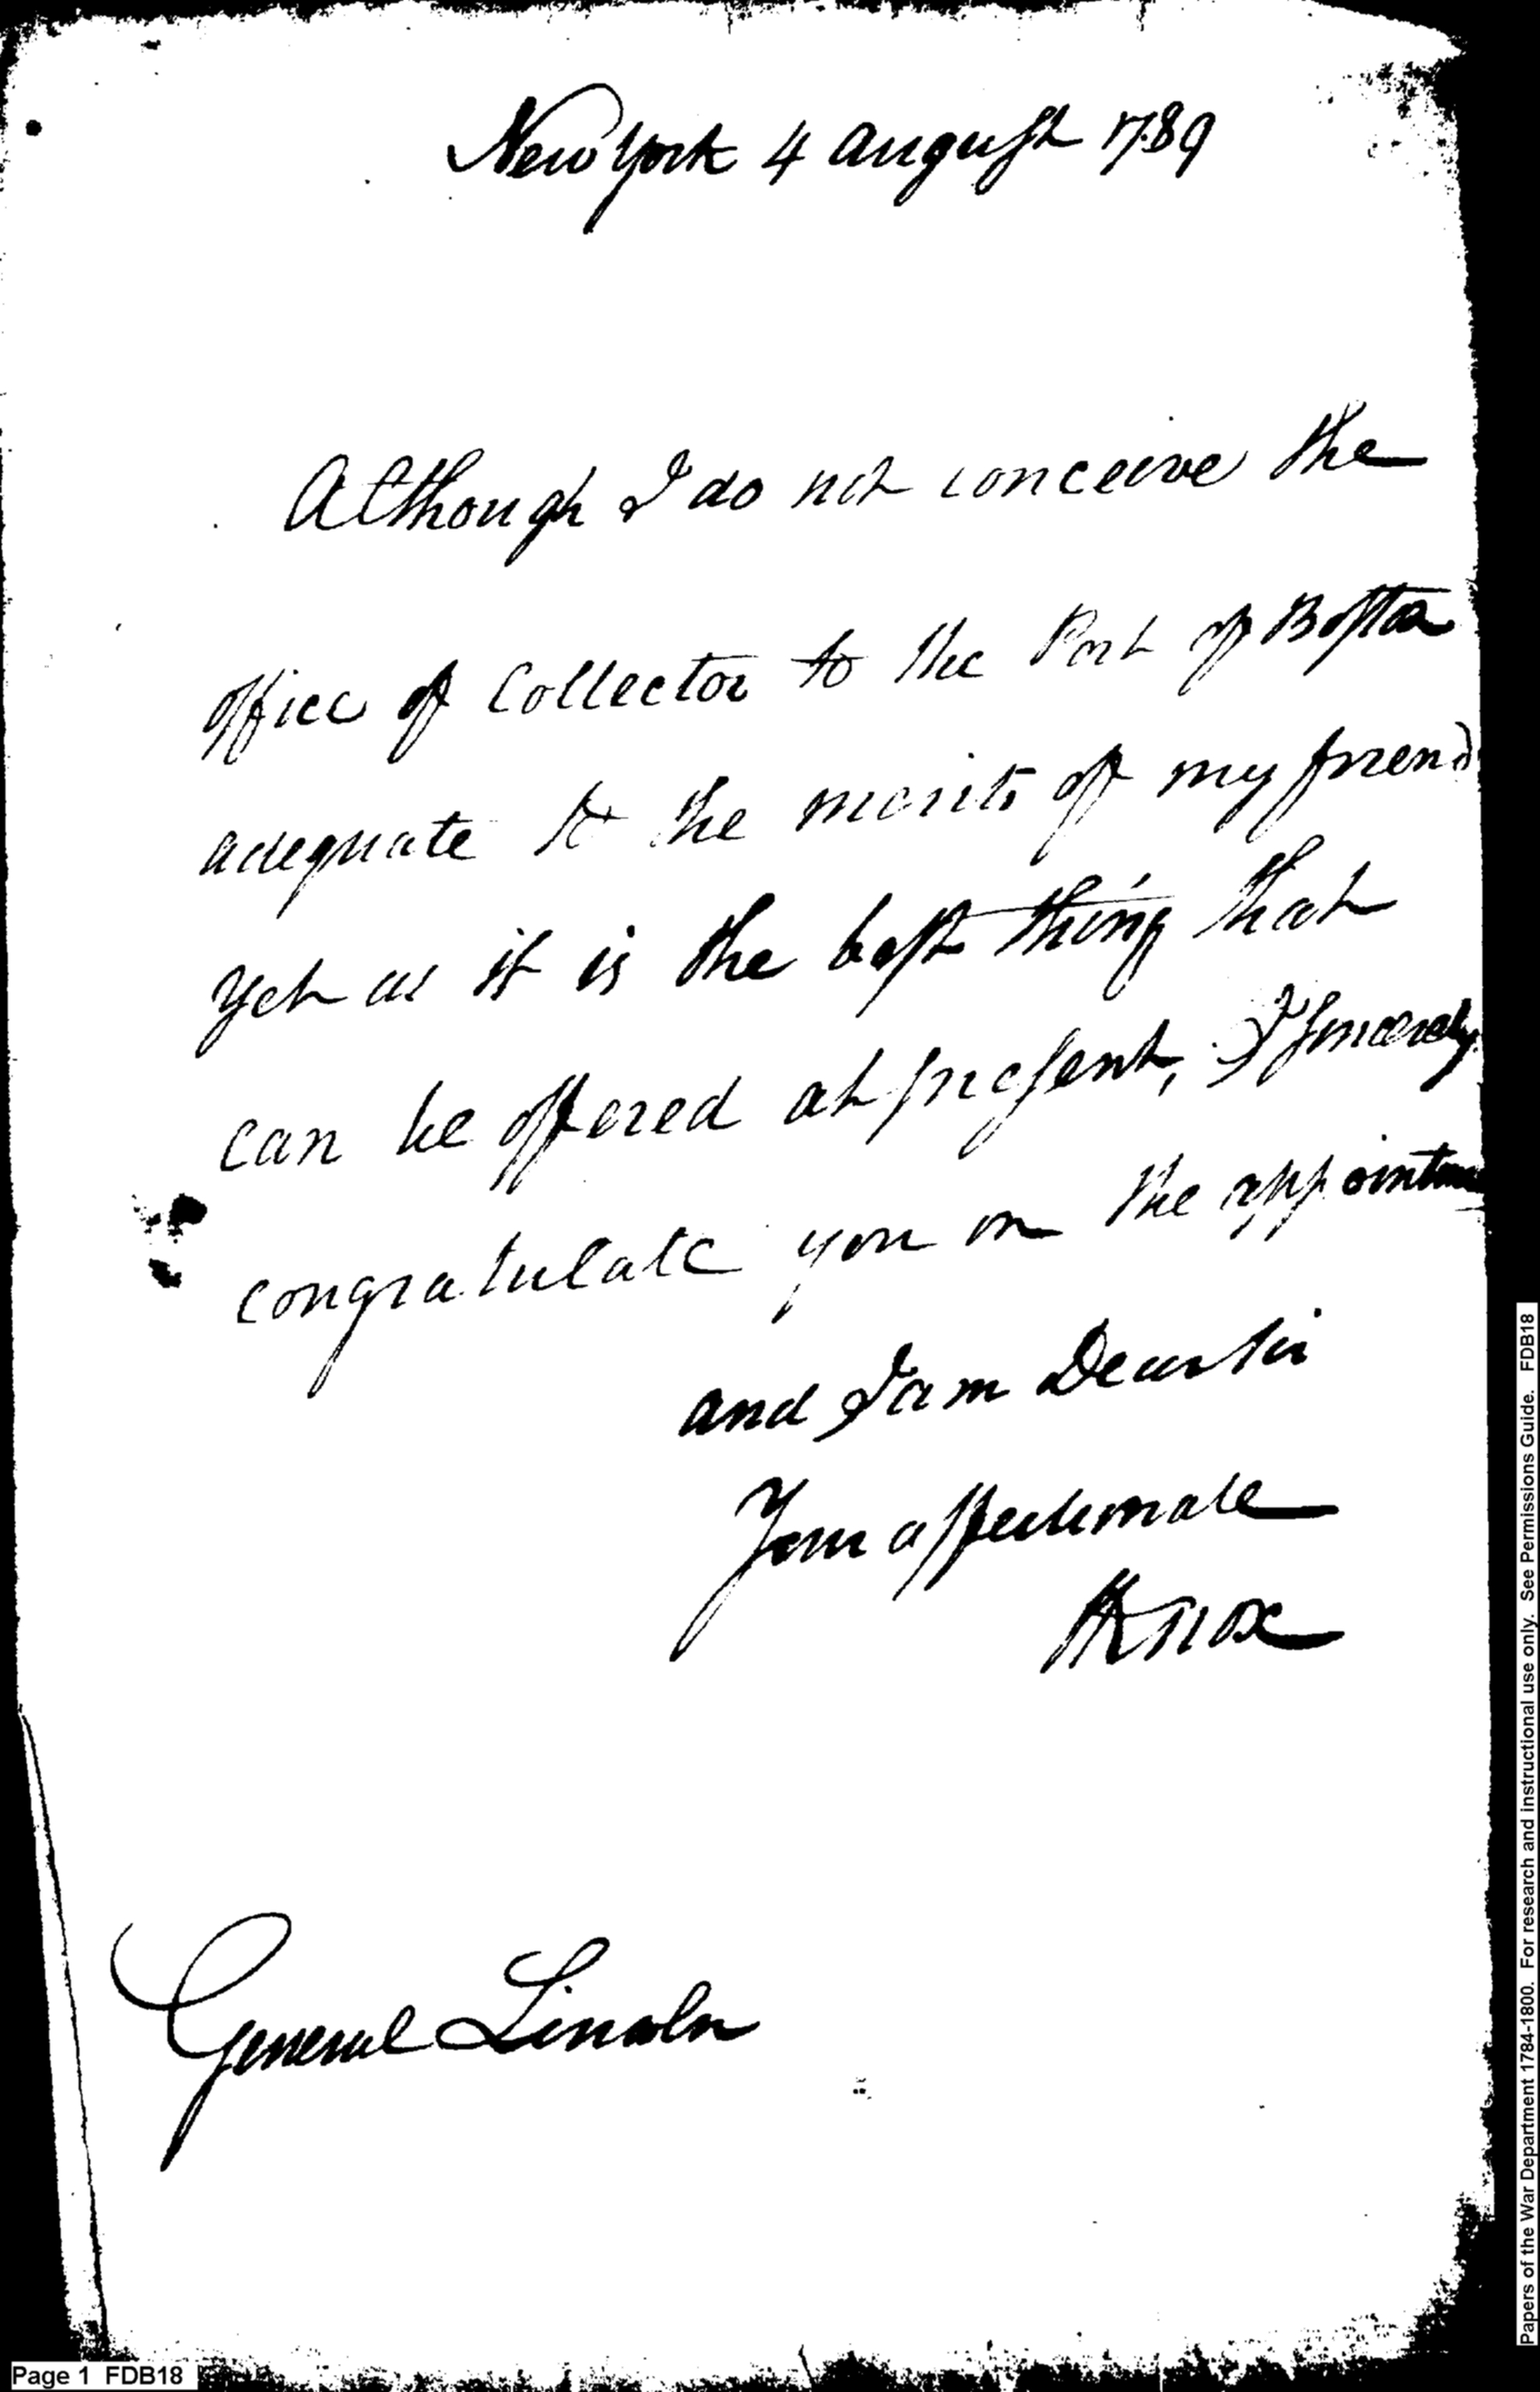 New York 4 august 1789
Although I do not conceive the
office of Collector to the Port of Boston
adequate to the merits of my friend
yet as it is the best thing that
can be offered at present, I sincerely
congratulate you on the appointm
and I am Dear sir
Your affectionate
HKnox
General Lincoln
Page 1 FDB18
Papers of the War Department 1784-1800. For research and instructional use only. See Permissions Guide. FDB18